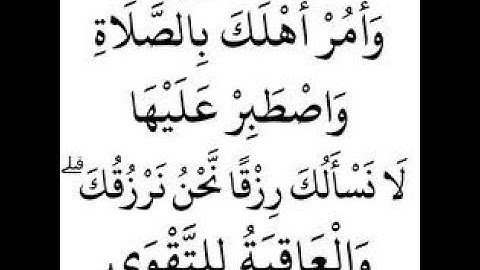 وَأْمُرْ أَهْلَكَ بِالصَّلَاةِ
وَاصْطَبِرْ عَلَيْهَا
لَا نَسْأَلُكَ رِزْقًا نَّحْنُ نَرْزُقُكَ ۗ
وَالْعَاقِبَةُ لِلتَّقْوَى